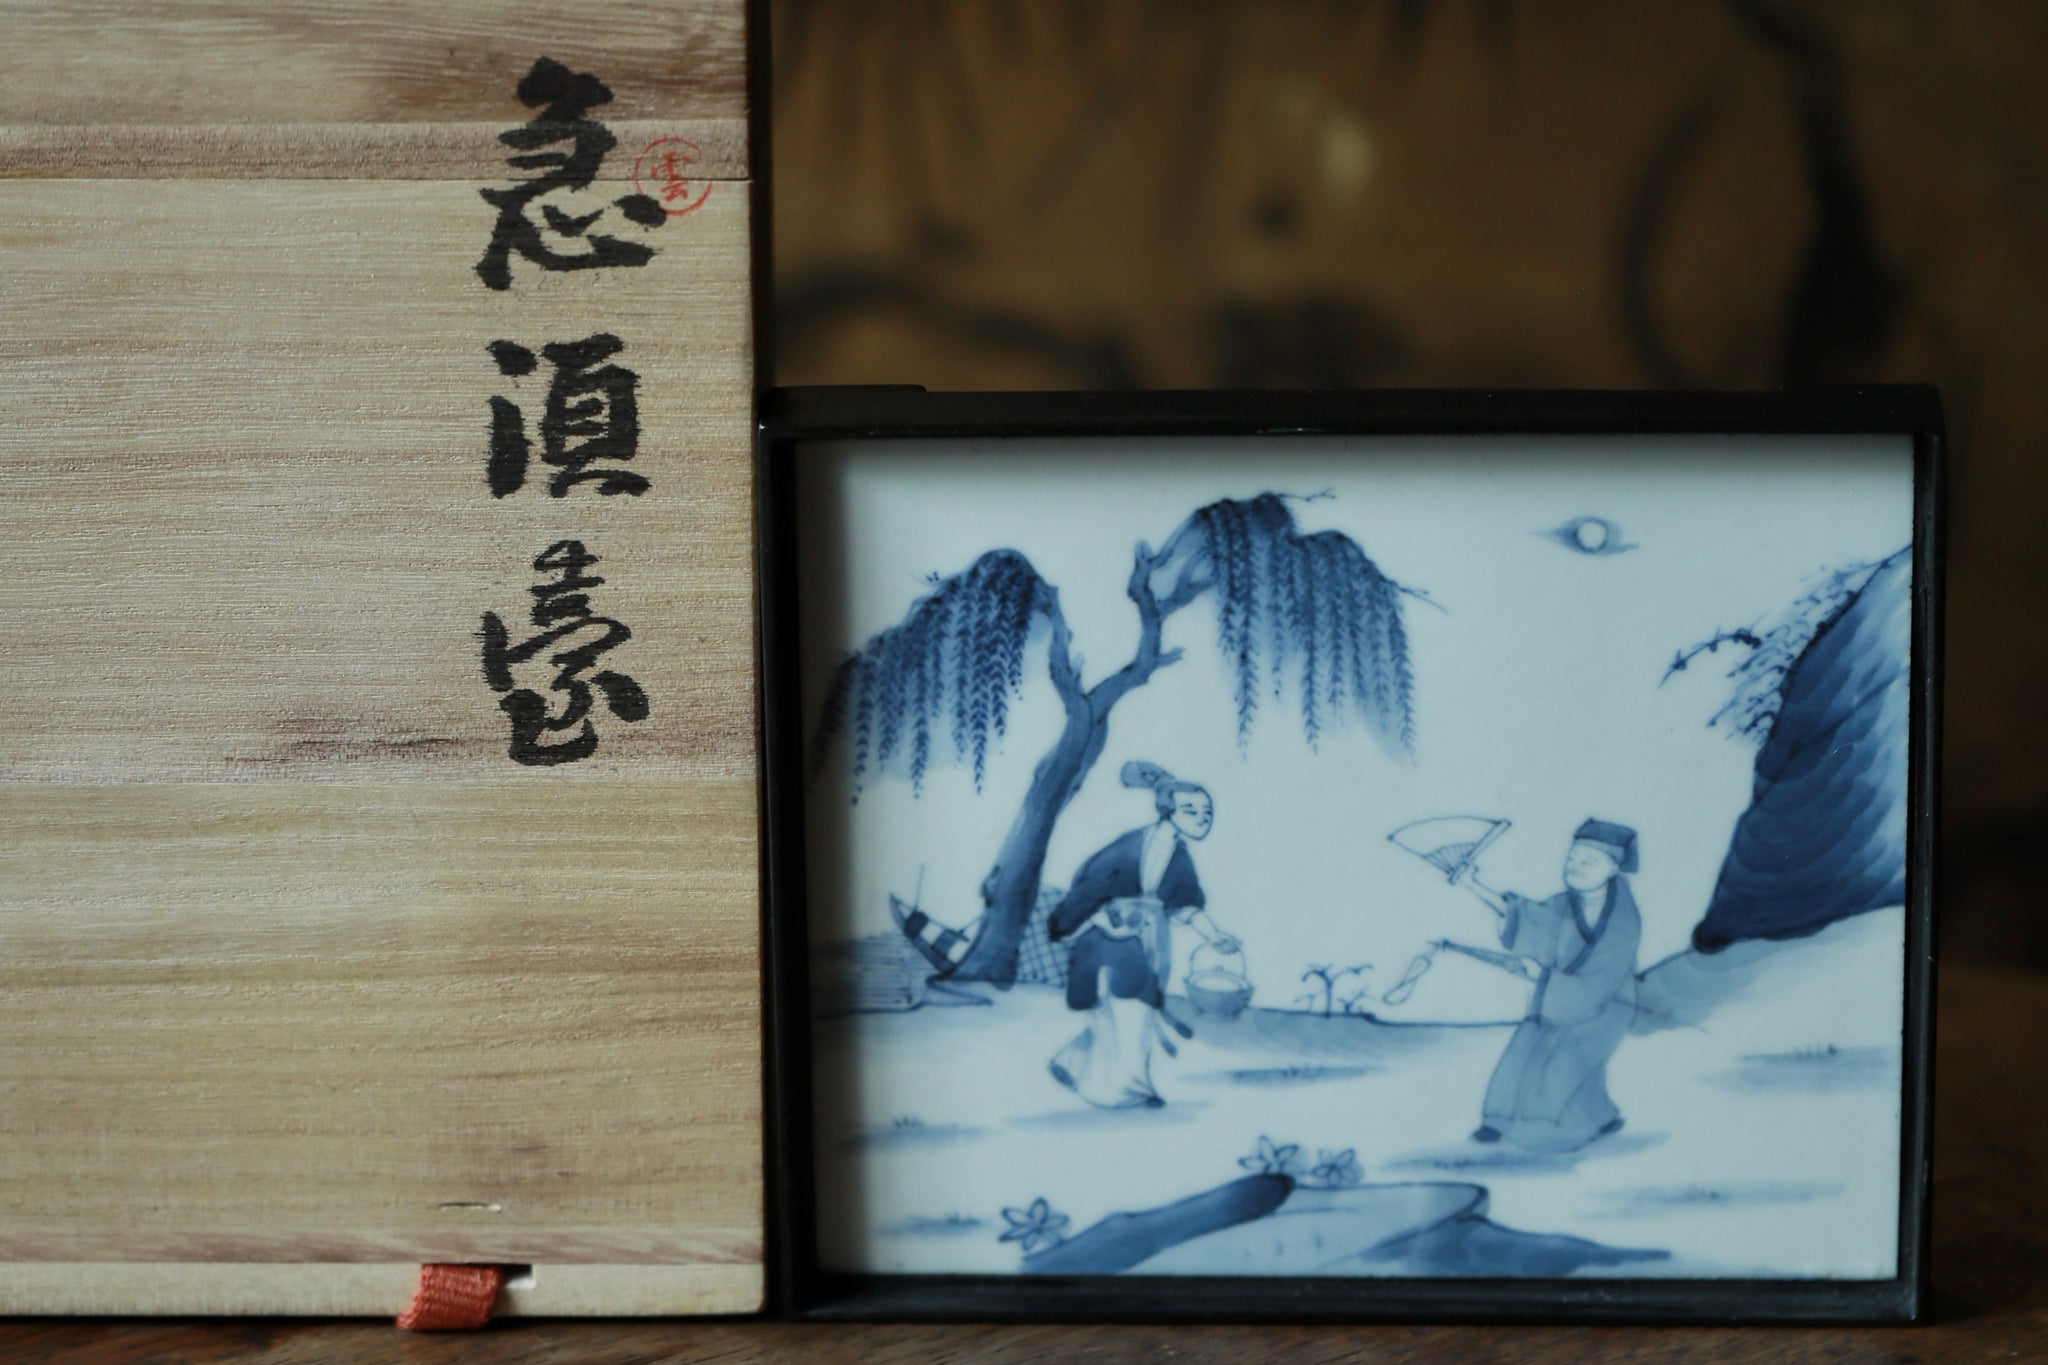 急須臺
雲